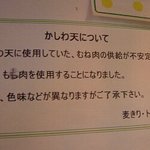 かしわ天について
わ天に使用していた、むね肉の供給が不安定
もも肉を使用することになりました。
、色味などが異なりますがご了承下さい。
麦きり・ト